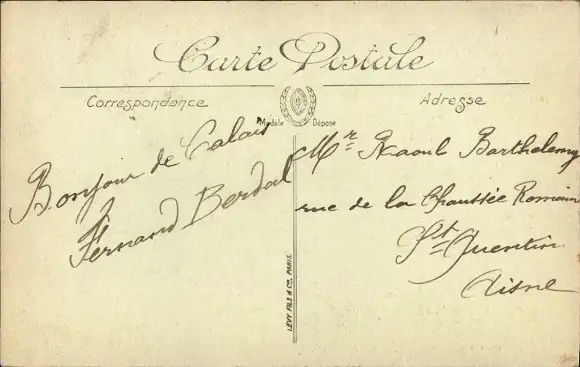 Carte Postale
Correspondance
Adresse
Modèle Déposé
Bonjour de Calais
Fernand Berdal
Mr Raoul Barthelemy
rue de la Chaussée Romain
St Quentin
Aisne
LÉVY FILS & Cie, PARIS.